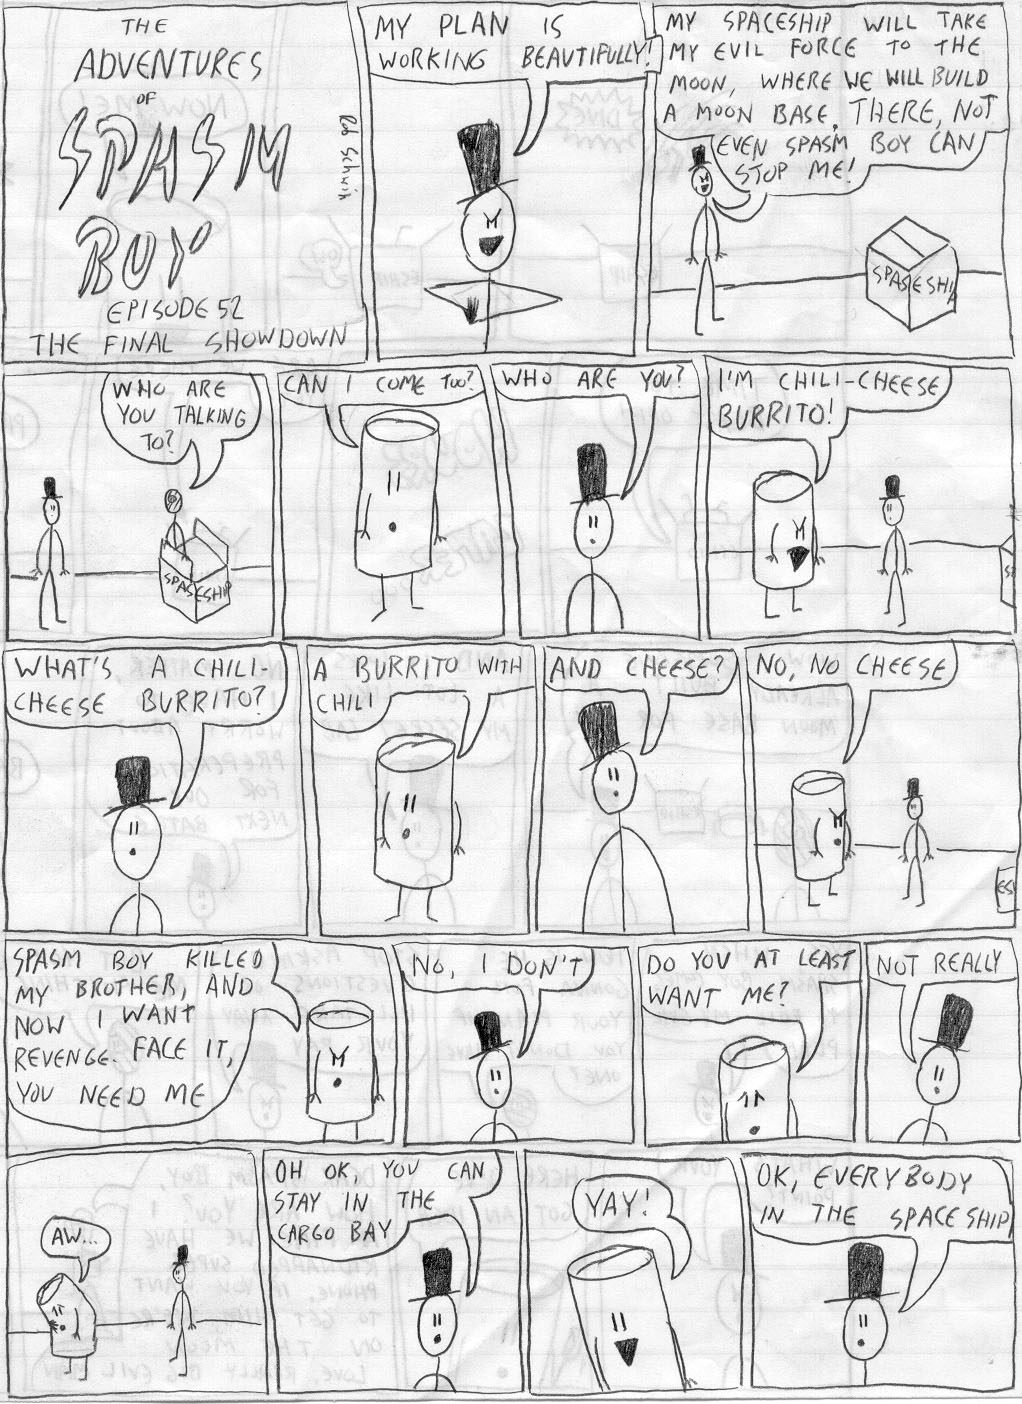 THE
ADVENTURES
OF
SPASM
BOY
EPISODE 52
THE FINAL SHOWDOWN
MY PLAN IS
WORKING BEAUTIFULLY!
MY SPACESHIP WILL TAKE
MY EVIL FORCE TO THE
MOON, WHERE WE WILL BUILD
A MOON BASE. THERE, NOT
EVEN SPASM BOY CAN
STOP ME!
SPASESHIP
WHO ARE
YOU TALKING
TO?
SPASESHIP
CAN I COME TOO?
WHO ARE YOU?
I'M CHILI-CHEESE
BURRITO!
WHAT'S A CHILI-
CHEESE BURRITO?
A BURRITO WITH
CHILI
AND CHEESE?
NO, NO CHEESE
SPASM BOY KILLED
MY BROTHER, AND
NOW I WANT
REVENGE. FACE IT,
YOU NEED ME
NO, I DON'T
DO YOU AT LEAST
WANT ME?
NOT REALLY
AW...
OH OK, YOU CAN
STAY IN THE
CARGO BAY
YAY!
OK, EVERYBODY
IN THE SPACESHIP